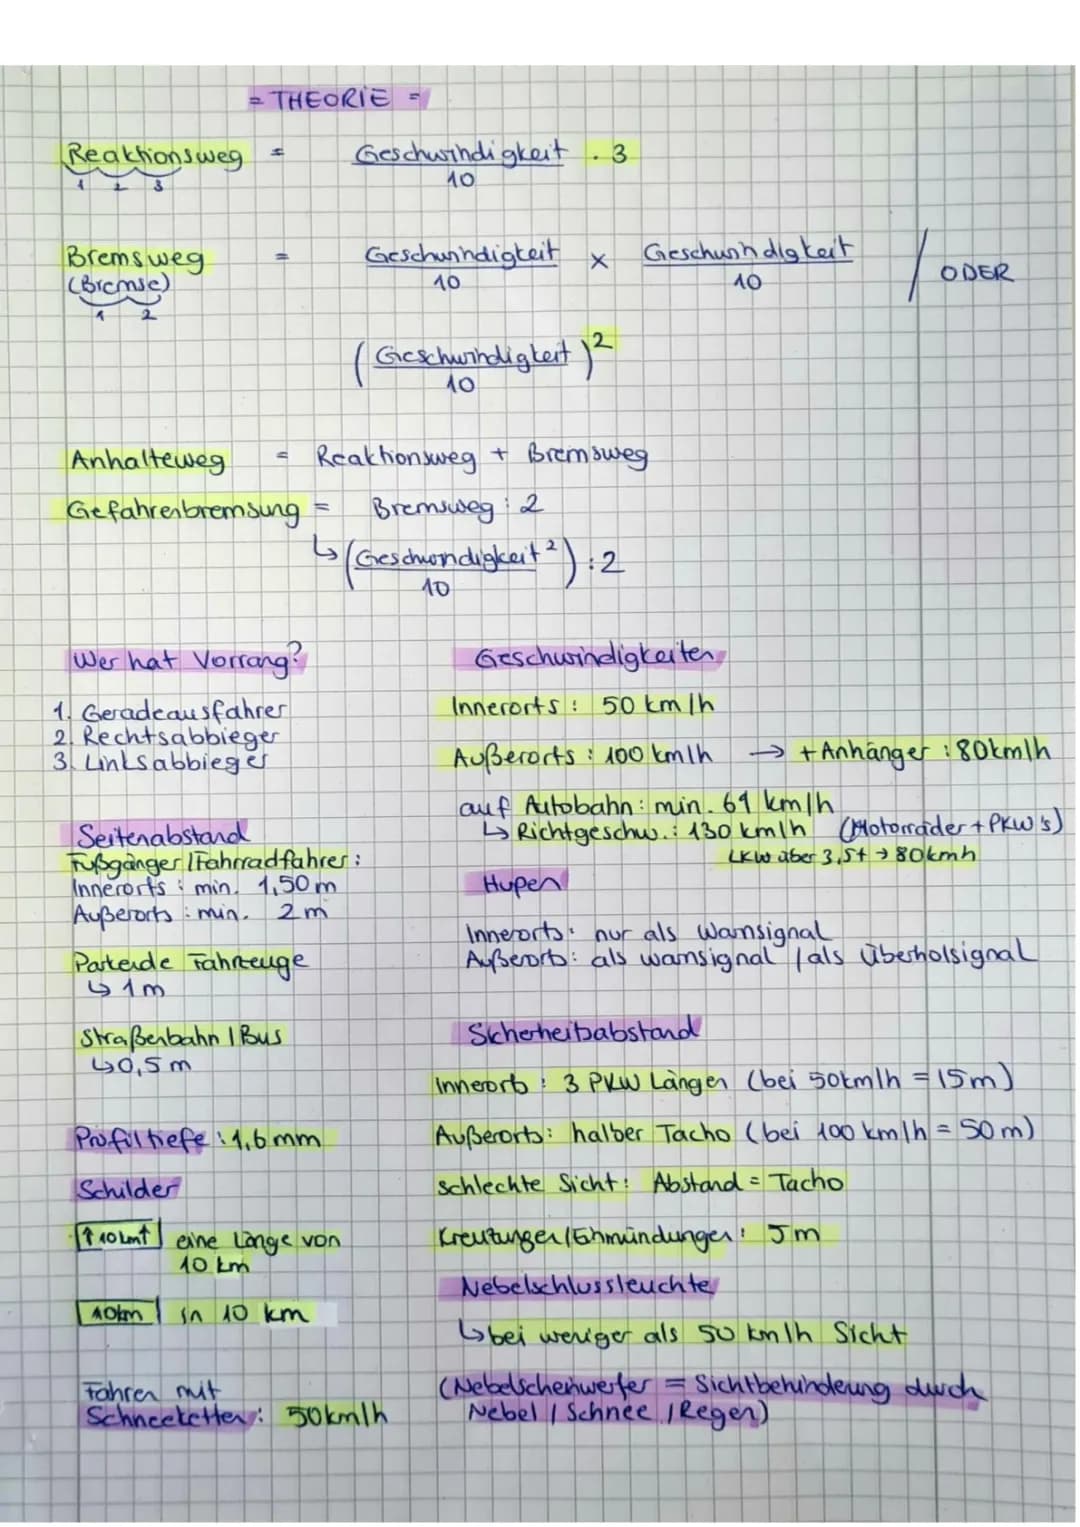 = THEORIE =
Reaktionsweg = Geschwindigkeit · 3
10
1 2 3
Bremsweg = Geschwindigkeit x Geschwindigkeit / ODER
(Bremse) 10 10
1 2
(Geschwindigkeit)²
10
Anhalteweg = Reaktionsweg + Bremsweg
Gefahrenbremsung = Bremsweg : 2
↳ (Geschwindigkeit²) : 2
10
Wer hat Vorrang?
1. Geradeausfahrer
2. Rechtsabbieger
3. Linksabbieger
Seitenabstand
Fußgänger / Fahrradfahrer :
Innerorts : min. 1,50 m
Außerorts : min. 2 m
Parkende Fahrzeuge
↳ 1 m
Straßenbahn / Bus
↳ 0,5 m
Profiltiefe : 1,6 mm
Schilder
↑ 10 km ↑ eine Länge von
10 km
10km in 10 km
Fahren mit
Schneeketten : 50 km/h
Geschwindigkeiten
Innerorts : 50 km/h
Außerorts : 100 km/h → + Anhänger : 80 km/h
auf Autobahn : min. 61 km/h
↳ Richtgeschw. : 130 km/h (Motorräder + PKW's)
LKW über 3,5t → 80 kmh
Hupen
Innerorts : nur als Warnsignal
Außerorts : als warnsignal / als überholsignal
Sicherheitsabstand
Innerorts : 3 PKW Längen (bei 50 km/h = 15 m)
Außerorts : halber Tacho (bei 100 km/h = 50 m)
schlechte Sicht : Abstand = Tacho
Kreuzungen / Einmündungen : 5 m
Nebelschlussleuchte
↳ bei weniger als 50 km/h Sicht
(Nebelscheinwerfer = Sichtbehinderung durch
Nebel / Schnee / Regen)